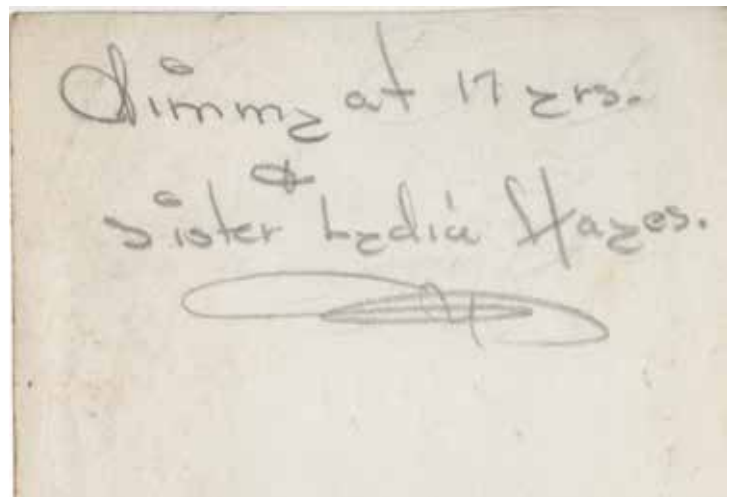 Jimmy at 17 yrs.
&
sister Lydia Hayes.